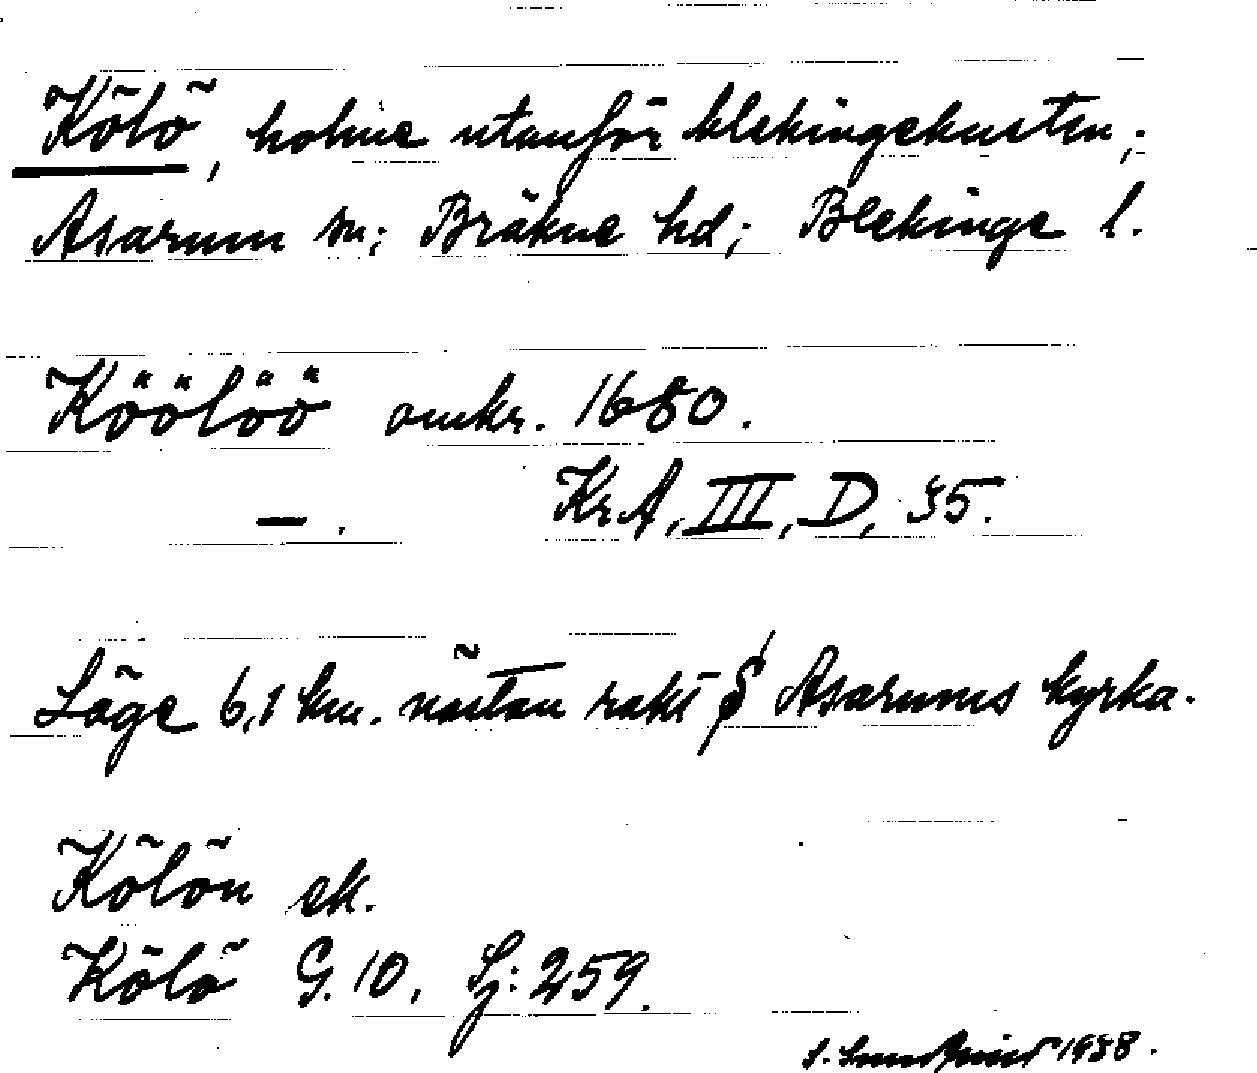 Kölö, holme utanför blekingekusten;
Asarum sn; Bräkne hd; Blekinge l.
Köölöö omkr. 1680.
—. KrA, III, D, 35.
Läge 6,1 km. nästan rakt S Asarums kyrka.
Kölön ek.
Kölö G. 10. Sj: 259.
1938.